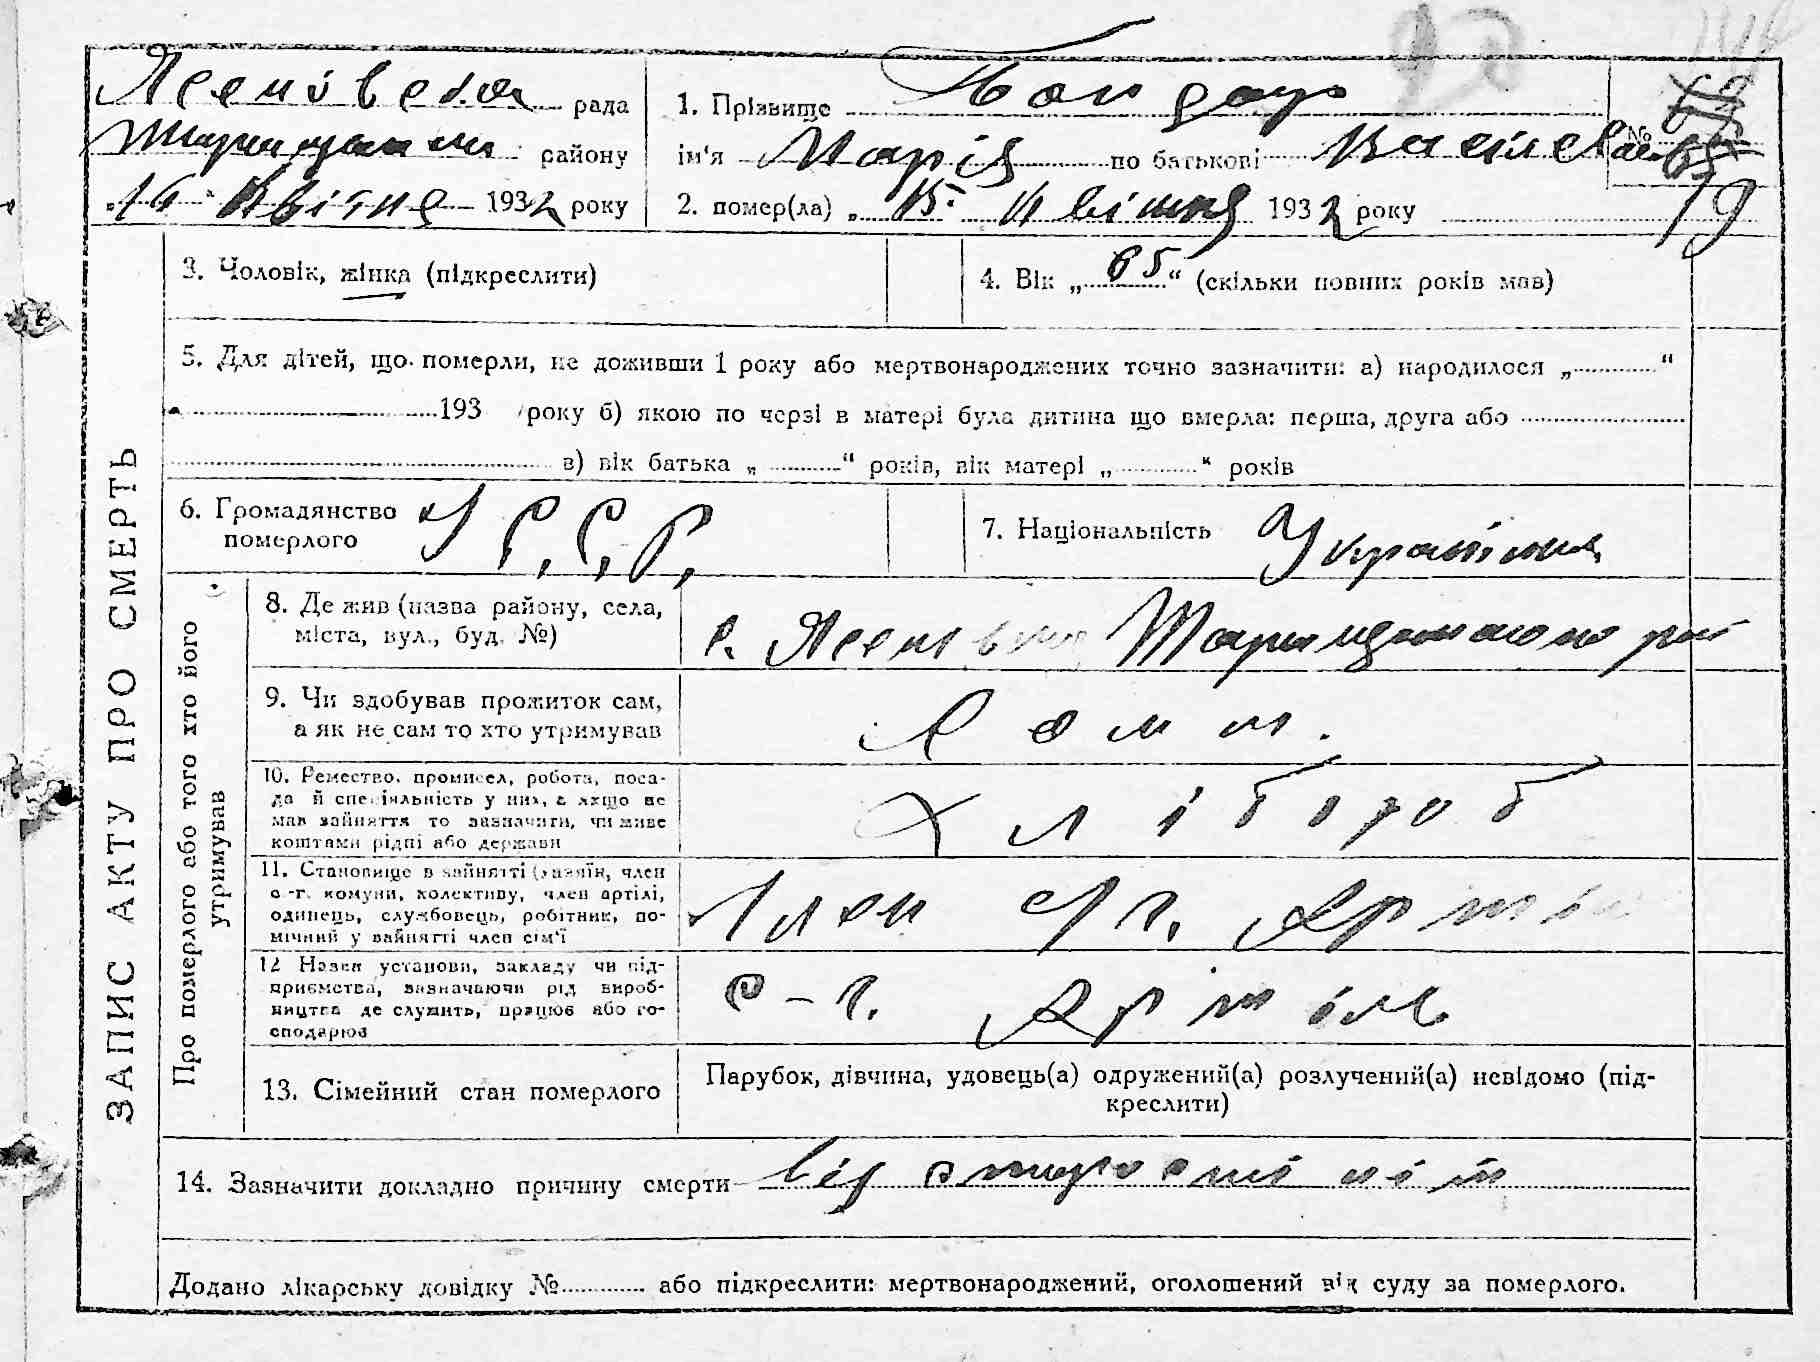 Ясеновська рада
Таращанськ району
„16 " Квітня 1932 року
1. Прізвище Бондар
ім'я Марія по батькові Василевна
№ 19
2. помер(ла) „ 15. Квітня 1932 року
3. Чоловік, жінка (підкреслити)
4. Вік „ 65 “ (скільки повних років мав)
5. Для дітей, що померли, не доживши 1 року або мертвонароджених точно зазначити: а) народилося „ “
193 року б) якою по черзі в матері була дитина що вмерла: перша, друга або
в) вік батька „ “ років, вік матері „ “ років
6. Громадянство
померлого У С. С. Р.
7. Національність Українка
ЗАПИС АКТУ ПРО СМЕРТЬ
Про померлого або того хто його
утримував
8. Де жив (назва району, села,
міста, вул., буд. №)
с. Таращанського рай
9. Чи здобував прожиток сам,
а як не сам то хто утримував
Сама.
10. Ремество, промисел, робота, поса-
да й спеціяльність у них, а якщо не
мав зайняття то зазначити, чи живе
коштами рідні або держави
Хлібороб
11. Становище в зайнятті (хазяїн, член
с.-г. комуни, колективу, член артілі,
одинець, службовець, робітник, по-
мічний у зайнятті член сім'ї
Член с/г. Артіл
12 Назва установи, закладу чи під-
приємства, зазначаючи рід вироб-
ництва де служить, працює або го-
сподарює
с-г. Артіль
13. Сімейний стан померлого
Парубок, дівчина, удовець(а) одружений(а) розлучений(а) невідомо (під-
креслити)
14. Зазначити докладно причину смерти від старости літ
Додано лікарську довідку № або підкреслити: мертвонароджений, оголошений від суду за померлого.